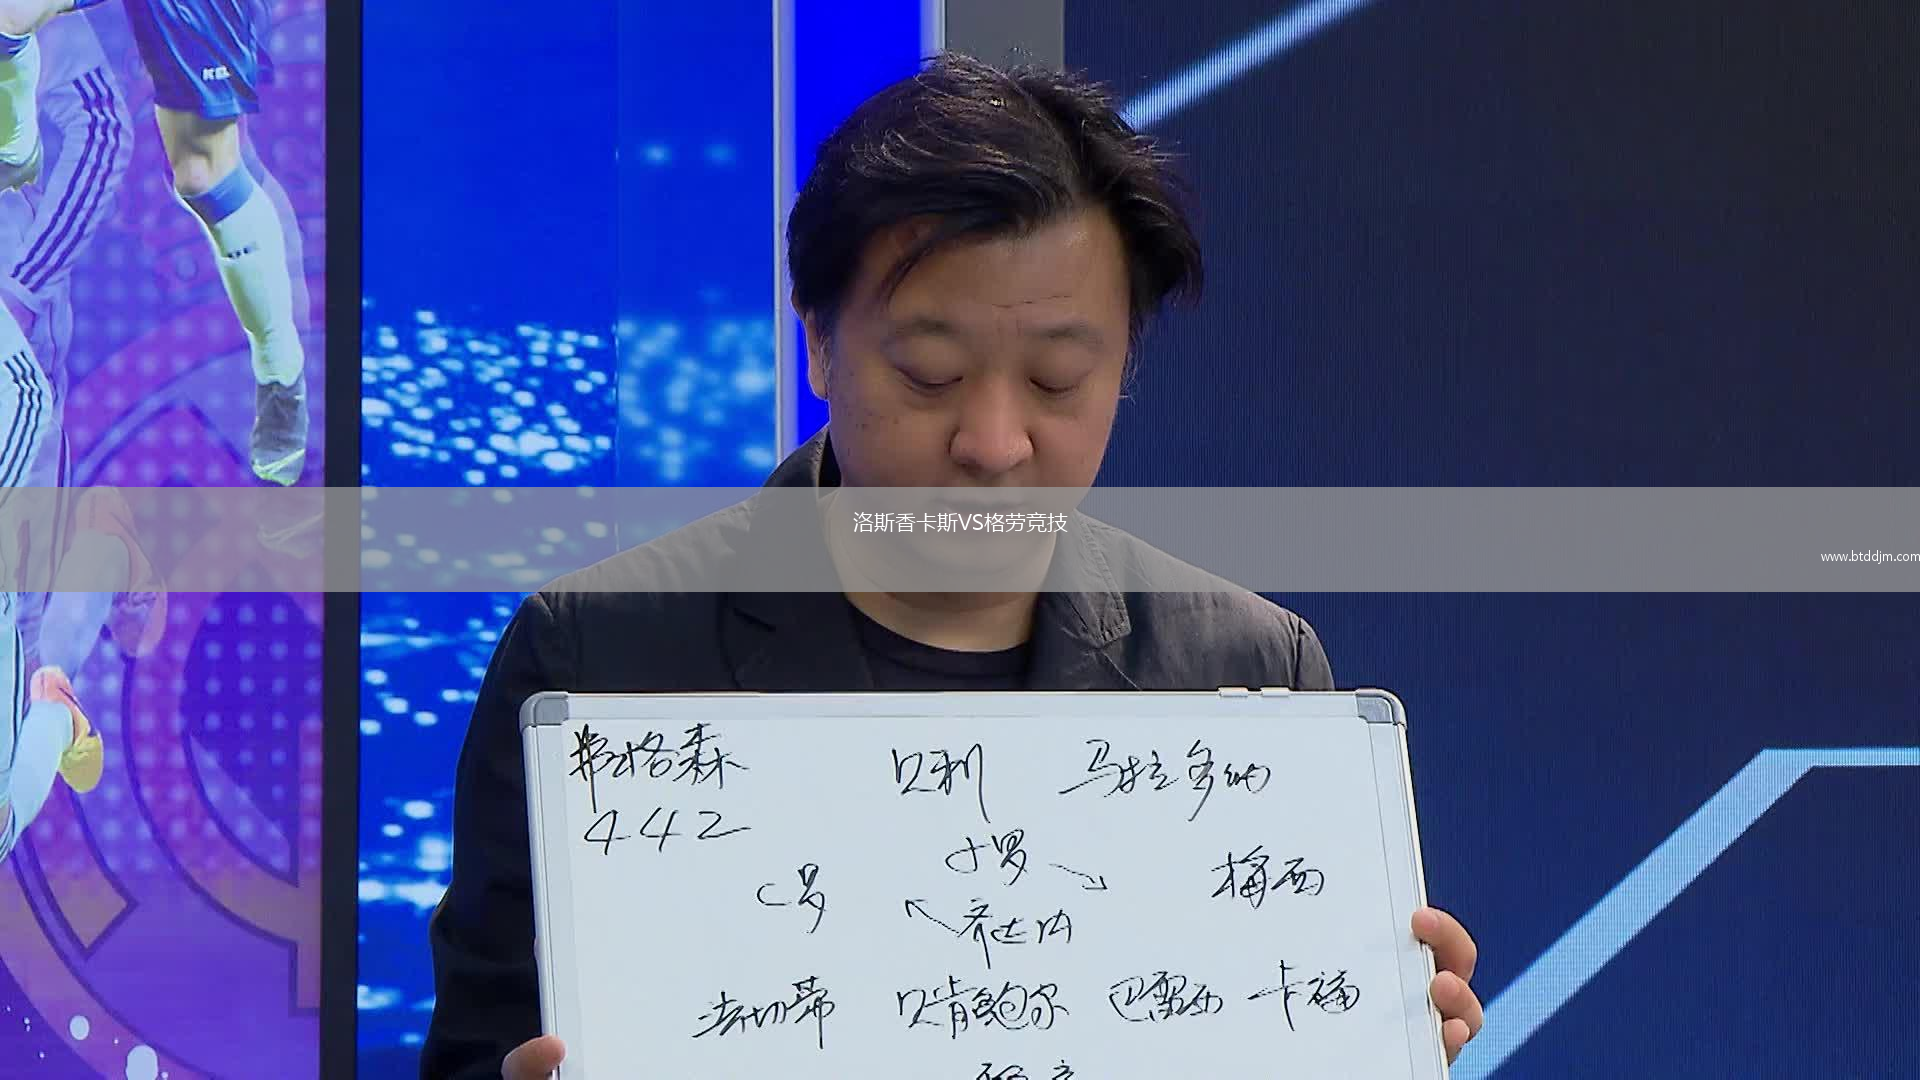 KEL
洛斯香卡斯VS格劳竞技
www.btddjm.com
弗格森 贝利 马拉多纳
442
小罗
C罗 梅西
齐达内
法切蒂 贝肯鲍尔 巴雷西 卡福